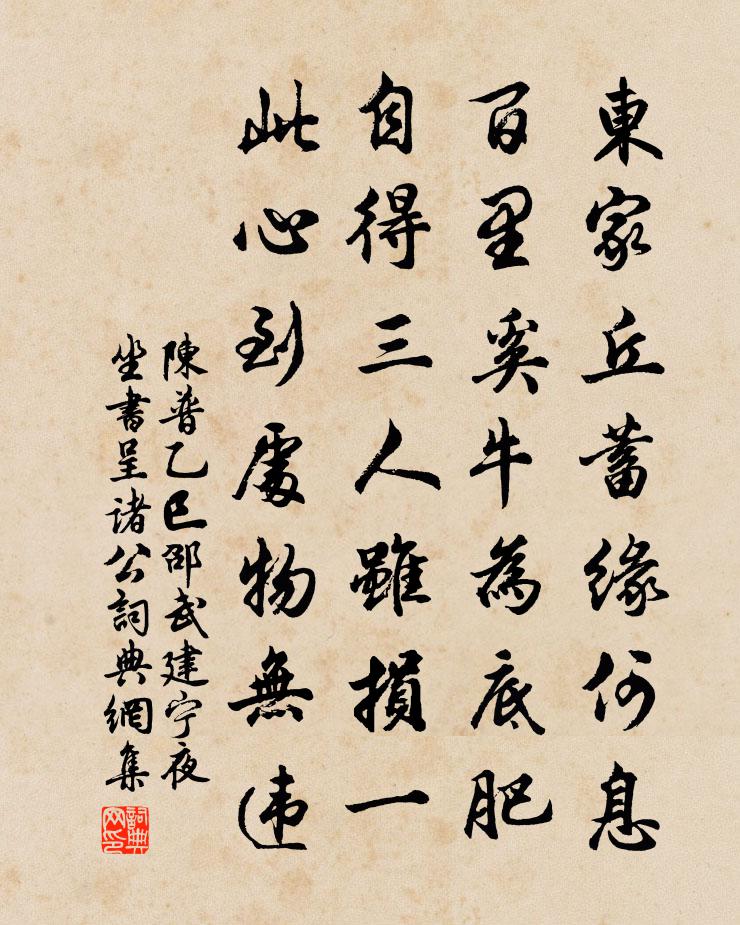 東家丘蓄緣何息
百里奚牛為底肥
自得三人雖損一
此心到處物無违
陳普乙巳邵武建宁夜
坐書呈諸公詞典網集
詞典网印